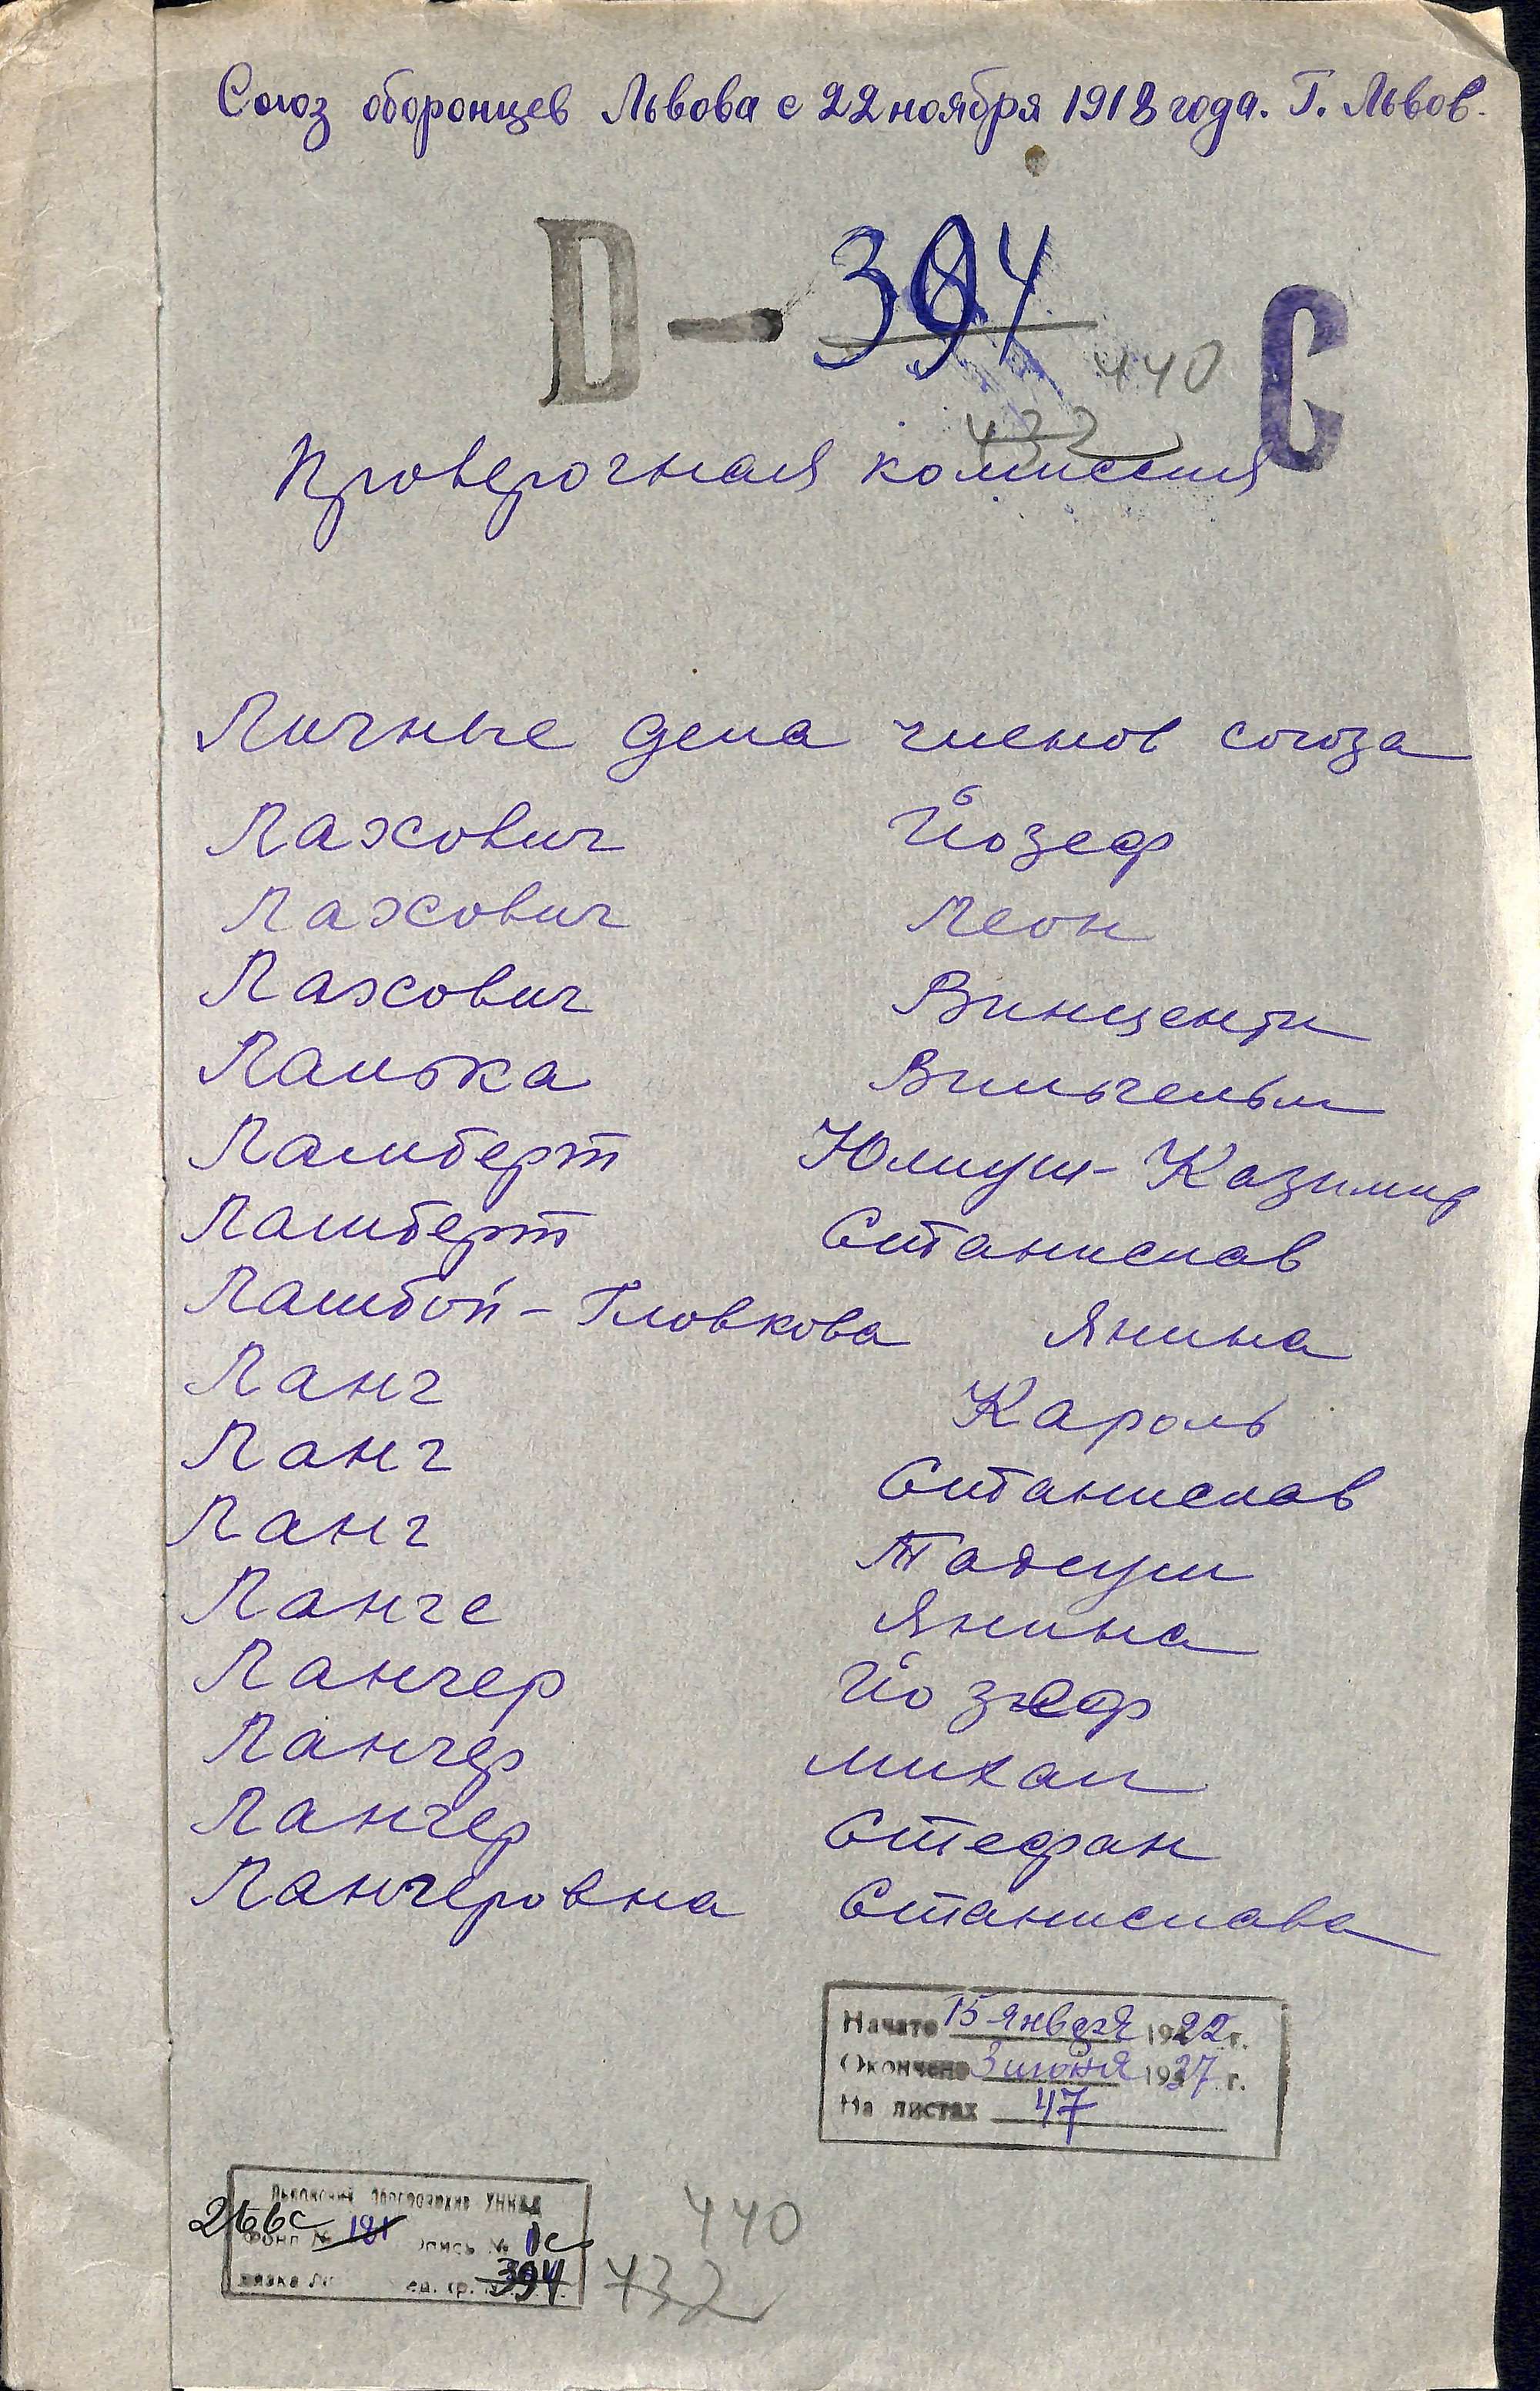 Союз оборонцев Львова с 22 ноября 1918 года. Г. Львов.
D — 394 С
440
432
Проверочная комиссия
Личные дела членов союза
Лахович Йозеф
Лахович Леон
Лахович Винценти
Лалька Вильгельм
Ламберт Юлиуш-Казимир
Ламберт Станислав
Ламбой-Гловкова Янина
Ланг Кароль
Ланг Станислав
Ланг Тадеуш
Ланге Янина
Лангер Йозеф
Лангер Михал
Лангер Стефан
Лангеровна Станислава
Начато 15 января 1922 г.
Окончено 3 июня 1937 г.
На листах 47
Львовский Облгосархив УНКВД
266с Фонд № 181 опись № 1с
вязка № ед. хр. 394
440
432